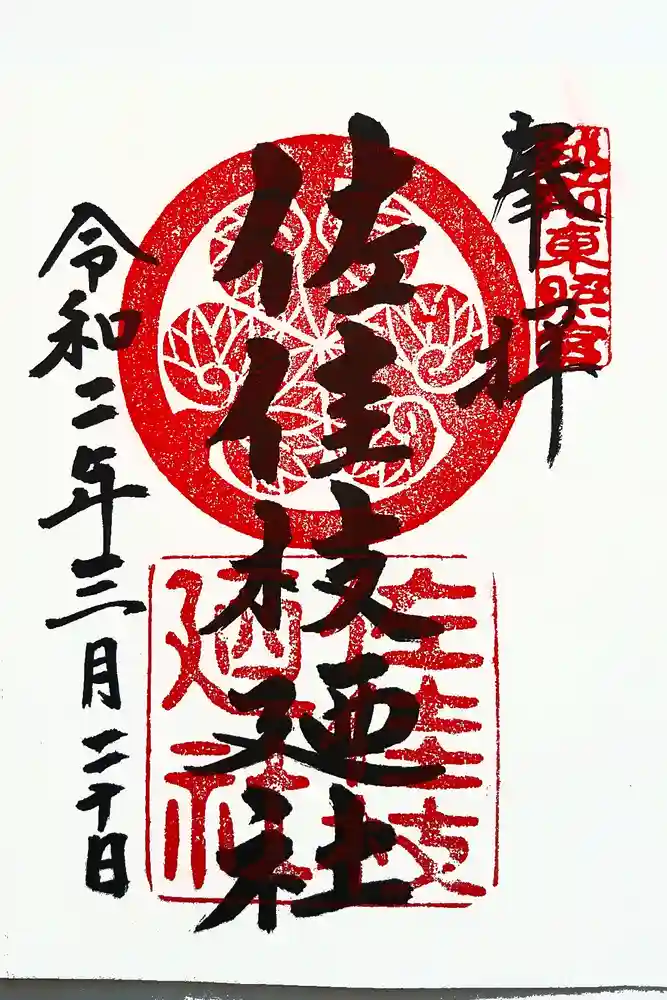 奉拝
越前東照宮
佐佳枝廼社
佐佳枝
廼社
令和二年三月二十日